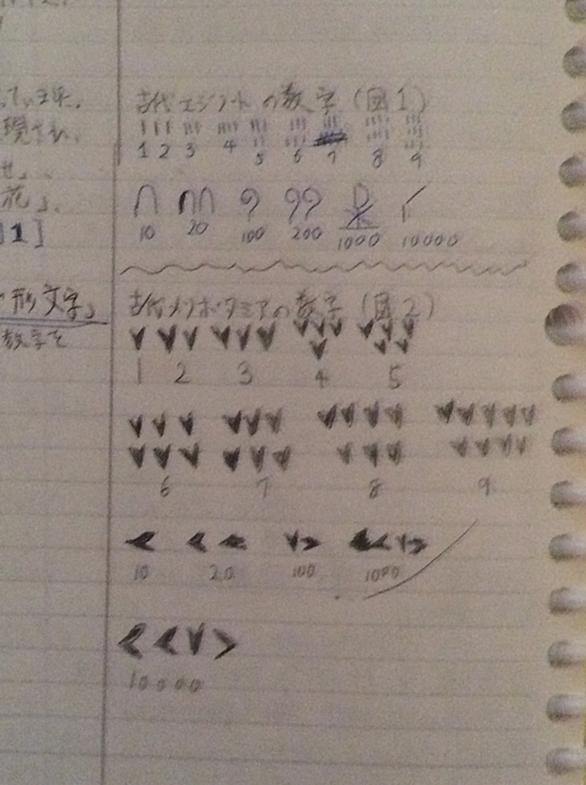 現され
花」、
図1]
形文字」
数字を
古代エジプトの数字 (図1)
1 2 3 4 5 6 7 8 9
10 20 100 200 1000 10000
古代メソポタミアの数字 (図2)
1 2 3 4 5
6 7 8 9
10 20 100 1000
10000